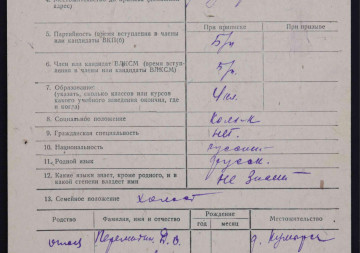 адрес)
При приписке
При призыве
5. Партийность (время вступления в члены
или кандидаты ВКП(б)
Б/п
6. Член или кандидат ВЛКСМ (время вступ-
ления в члены или кандидаты ВЛКСМ)
б/п.
7. Образование:
(указать, сколько классов или курсов
какого учебного заведения окончил, где
и когда)
4 кл.
8. Социальное положение
Колх-к
9. Гражданская специальность
нет.
10. Национальность
русский
11. Родной язык
русск.
12. Какие языки знает, кроме родного, и в
какой степени владеет ими
не знает
13. Семейное положение
холост
Родство
Фамилия, имя и отчество
Рождение
Местожительство
год
месяц
отец
д.